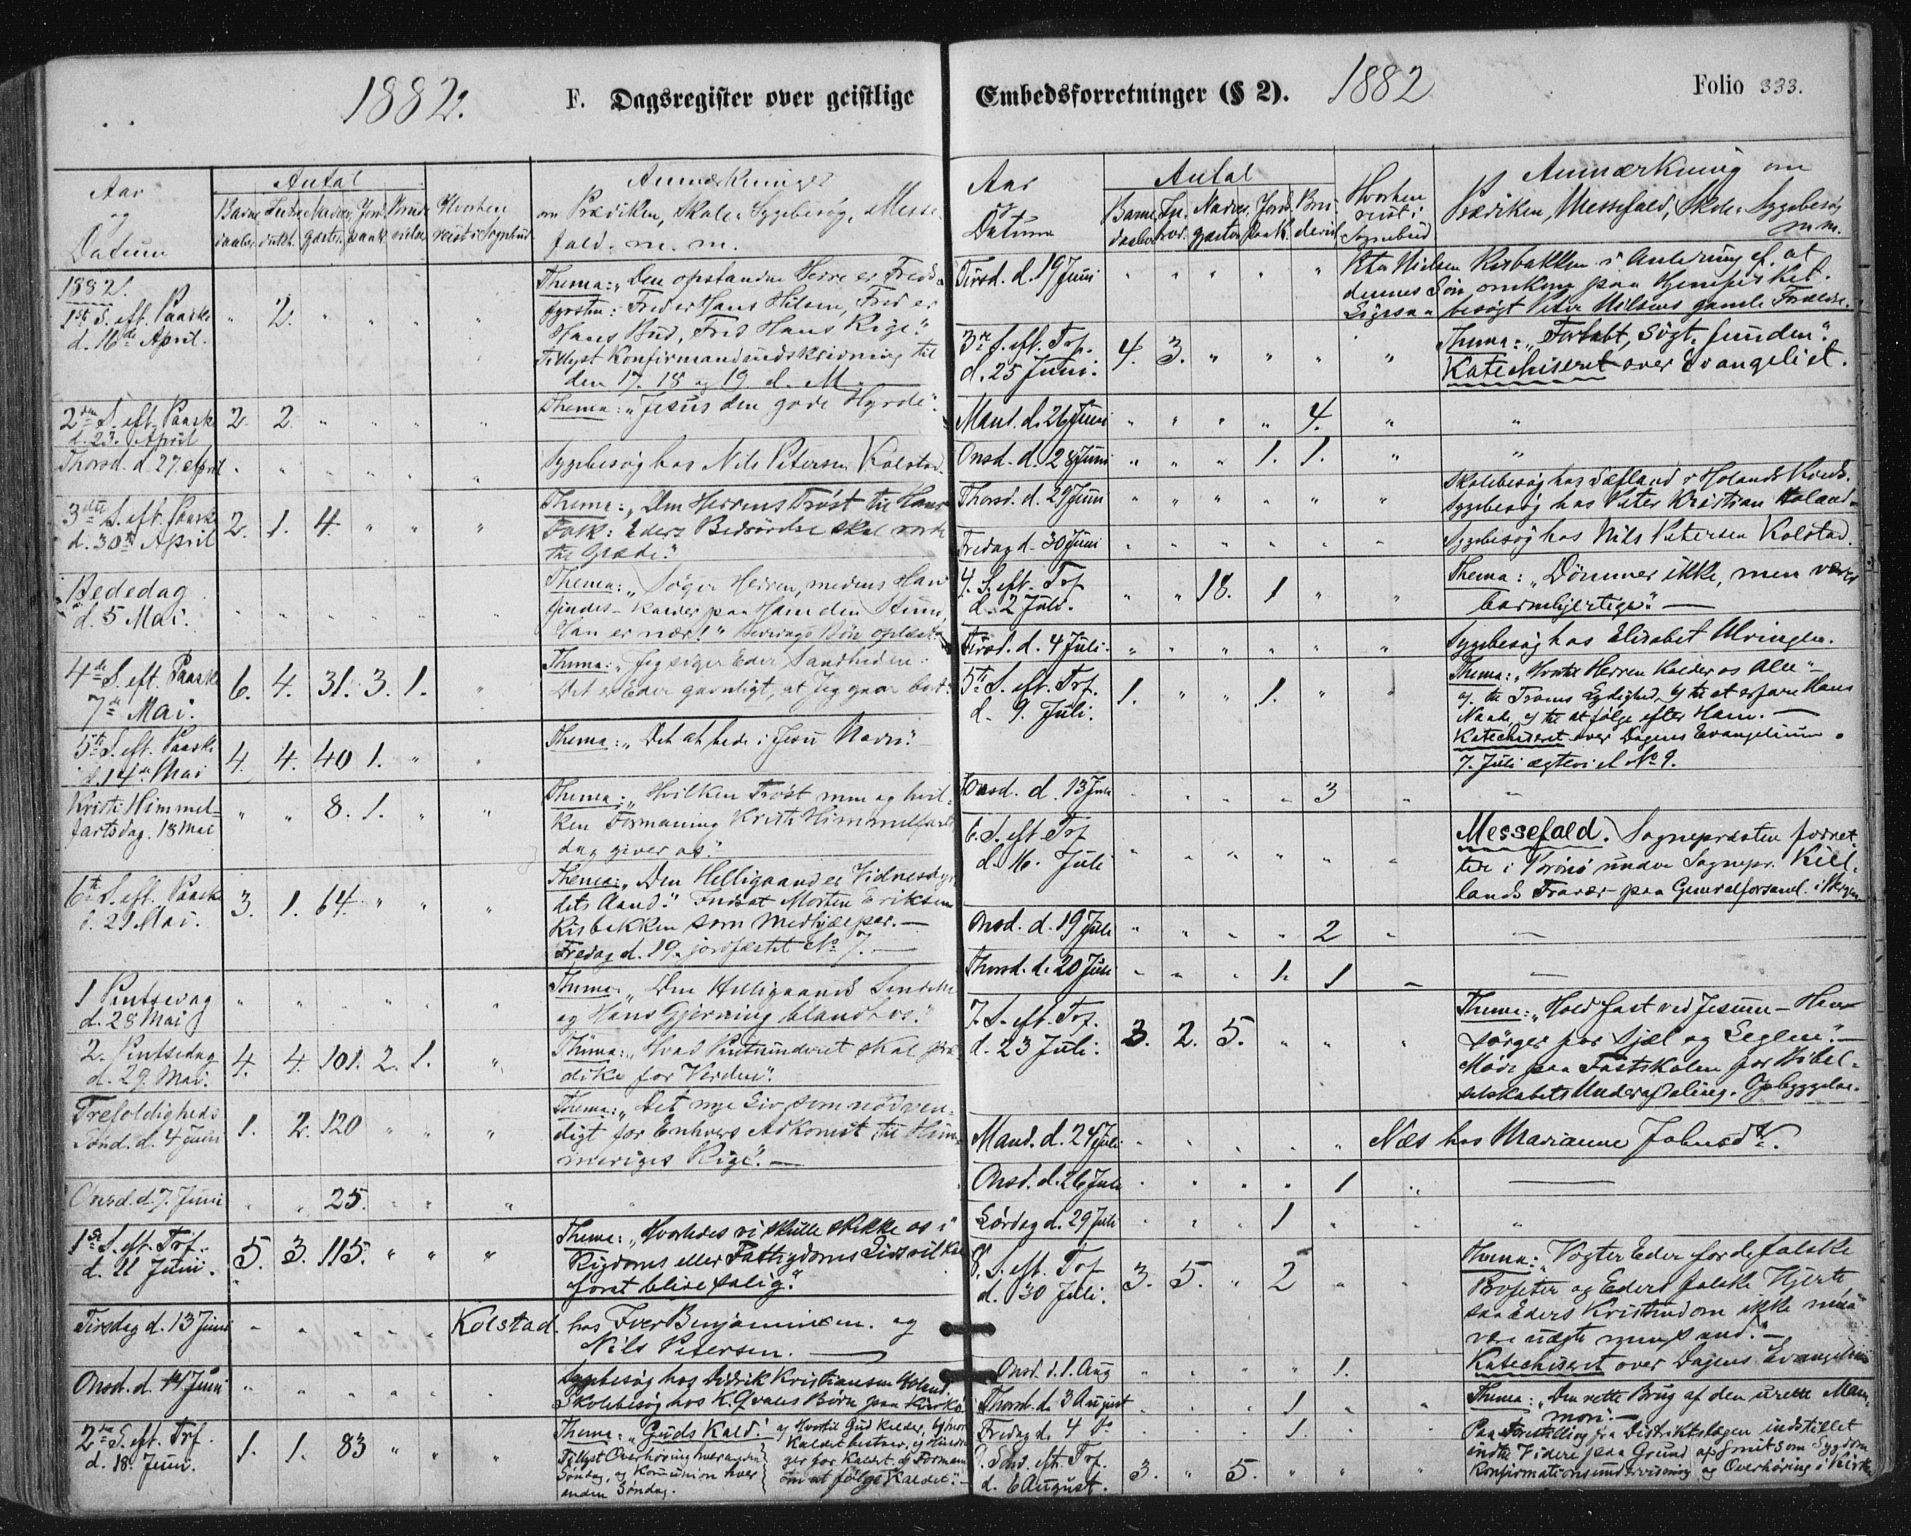 1882.
F. Dagsregister over geistlige
Aar og Datum
Antal
Hvorhen reist i Sognebud
Anmærkninger
om Prædiken, Skole, Sygebesøg, Messe-
fald. m. m.
1882.
1ste S. eft. Paaske
d. 16de April.
" 2. " " " "
Thema: „Den opstandne Herre er Freds-
fyrsten: Fred er Hans Hilsen, Fred er
Hans Bud, Fred Hans Rige."
Tillyst Konfirmandindskrivning til
den 17. 18 og 19 d. M.
2den S. eft. Paaske
d. 23. April
2. 2. " " " "
Thema: „Jesus den gode Hyrde".
Thorsd. d. 27 April
Sygebesøg hos Nils Petersen Kolstad.
3die S. eft. Paaske
d. 30te April
2. 1. 4. " " "
Thema: „Den Herrens Trøst til Hans
Folk: Eders Bedrøvelse skal vorde
til Glæde."
Bededag
d. 5 Mai.
Thema: „Søger Herren, medens Han
findes – Kalder paa Ham den Stund,
Han er nær!"
4de S. eft. Paaske
7de Mai.
6. 4. 31. 3. 1. "
Thema: „Jeg siger Eder Sandheden:
Det er Eder gavnligt, at Jeg gaar bort
5te S. eft. Paaske
d. 14de Mai
4. 4. 40 1. " "
Thema: „Det at bede i Jesu Navn".
Kristi Himmel-
fartsdag. 18 Mai
" " 8. 1. " "
Thema: „Hvilken Trøst men og hvil-
ken Formaning Kristi Himmelfarts
dag giver os".
6te S. eft. Paaske
d. 21 Mai.
3. 1. 64. " " "
Thema: „Den Helligaand er Vidnesbyr-
dets Aand." Indsat Morten Eriksen
Kisbakken som Medhjælper. –
Fredag d. 19. jordfæstet No 7. –
1 Pintsedag
d. 28 Mai
Thema: „Den Helligaands Sendelse
og Hans Gjerning blandt os."
2. Pintsedag
d. 29. Mai.
4. 4. 101. 2. 1. "
Thema: „Hvad Pintsunderet skal præ-
dike for Verden".
Trefoldigheds
Sönd. d. 4 Juni
1. 2. 120 " " "
Thema: „Det nye Liv som nödven-
digt for Enhvers Adkomst til Him-
meriges Rige". –
Onsd. d. 7. Juni
" " 25. " " "
1ste S. eft. Trf.
d. 11 Juni.
5. 3. 115. " " "
Thema: „Hvorledes vi skulle skikke os i
Rigdoms eller Fattigdoms Livsvilkaar
forat blive salig."
Tirsdag d. 13 Juni
Kolstad. hos Iver Benjaminsen og
Nils Petersen. –
Onsd. d. 14 Juni
Sygebesøg hos Didrik Kristiansen Holand.
Skolebesøg hos K. Qvales Børn paa Kirke
2den S. eft. Trf.
d. 18. Juni.
1. 1. 83 " " "
Thema: „Guds Kald:
Tillyst Overhøring hveranden
Søndag, og Kommunion hver
anden Søndag.
Embedsforretninger (§ 2).
1882
Folio 333.
Aar og Datum
Antal
Hvorhen reist i Sognebud
Anmærkning om
Prædiken, Messefald, Skole, Sygebesøg
m.m.
Tirsd. d. 19 Juni
besøgt Peter Nilsens gamle Forældre.
3die S. eft. Trf.
d. 25 Juni.
4. 3. " " " "
Thema: „Fortabt, søgt, funden".
Katechiseret over Evangeliet.
Mand. d. 26 Juni
" " " " 4. "
Onsd. d. 28 Juni
" " " 1. 1. "
Thorsd. d. 29 Juni
Sygebesøg hos Peter Kristian Holand.
Fredag d. 30 Juni
Sygebesøg hos Nils Petersen Kolstad.
4. S. eft. Trf
d. 2 Juli.
" " 18. 1 " "
Thema: „Dömmer ikke, men værer
barmhjertige". –
Tirsd. d. 4 Juli.
Sygebesøg hos Elisabet Ulvingen.
5te S. eft. Trf.
d. 9. Juli.
1. " " 1. " "
Thema: „Hvortil Herren kalder os Alle –
og til at følge efter Ham. –
Katechiseret over Dagens Evangelium.
7. Juli ægteviet No 9.
Onsd. d. 13 Juli
" " " " 3 "
6. S. eft. Trf
d. 16. Juli
Messefald. Sognepresten forret-
tede i Brönö under Sognepr. Kiel-
lands Fravær paa Generalforsaml. i Bergen
Onsd. d. 19 Juli
" " " " 2 "
Thorsd. d. 20 Juli
" " " 1. 1 "
7. S. eft. Trf.
d. 23 Juli.
3. 2. 5. " " "
Thema: „Hold fast ved Jesum – Han
sörger for Sjæl og Legeme". –
Möde paa Fastskolen for Bibel-
selskabets Underafdeling. Opbyggelse.
Mand. d. 24 Juli
Næs hos Marianne Johnsdtr.
Onsd. d. 26 Juli
" " " " 1 "
Lördag d. 29 Juli
" " " 1 " "
8. S. eft. Trf
d. 30 Juli.
3. 5. " 2 " "
Thema: „Vogter Eder for de falske
Profeter og Eders falske Hjerte
saa Eders Kristendom ikke maa
være uægte
Katechiseret over Dagens Evangelium
Onsd. d. 1. Aug
" " " " 1. "
Thorsd. d. 3 August
" " " 1 " "
Fredag d. 4 do
" " " 1. " "
9. Sönd. eft. Trf.
d. 6 August.
3. " 5. " " "
Thema: „Den rette Brug af den urette Mam-
mon. –
Paa Forestilling fra Distriktslægen indstillet
indtil Videre paa Grund af smitsom Sygdom
Konfirmationsundervisning og Overhøring i Kirken